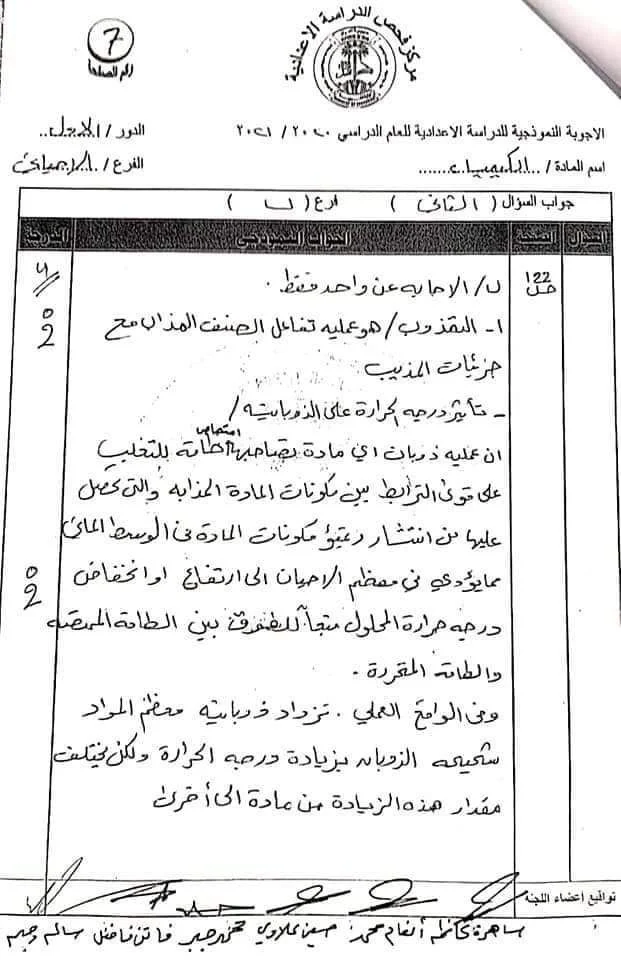 7
رقم الصفحة
مركز فحص الدراسة الاعدادية
الاجوبة النموذجية للدراسة الاعدادية للعام الدراسي ٢٠٢٠ / ٢٠٢١ الدور / الاول..
اسم المادة / ..الكيمياء....... الفرع / ..الاحيائي
جواب السؤال ( الثاني ) فرع ( ب )
السؤال الصفحة الجواب النموذجي الدرجة
122
ب/ الاجابه عن واحد فقط .
١- التذوب / هو عمليه تفاعل الصنف المذاب مع
جزئيات المذيب
- تأثير درجه الحرارة على الذوبانيه /
امتصاص
ان عمليه ذوبات اي مادة يصاحبها طاقه للتغلب
على قوى الترابط بين مكونات المادة المذابه والتي يحصل
عليها من انتشار و مكونات المادة في الوسط المائي
مما يؤدي في معظم الاحيان الى ارتفاع او انخفاض
درجه حرارة المحلول بين الطاقة الممتصه
والطاقه المتحررة .
وفي الواقع العملي . تزداد ذوبانيه معظم المواد
شحيحه الذوبان بزيادة درجه الحرارة ولكن يختلف
مقدار هذه الزيادة من مادة الى أخرى
تواقيع اعضاء اللجنة
ساهرة كاظم أنغام محمد حسين علاوي محمد جبر فاتن فاضل سالم رحيم